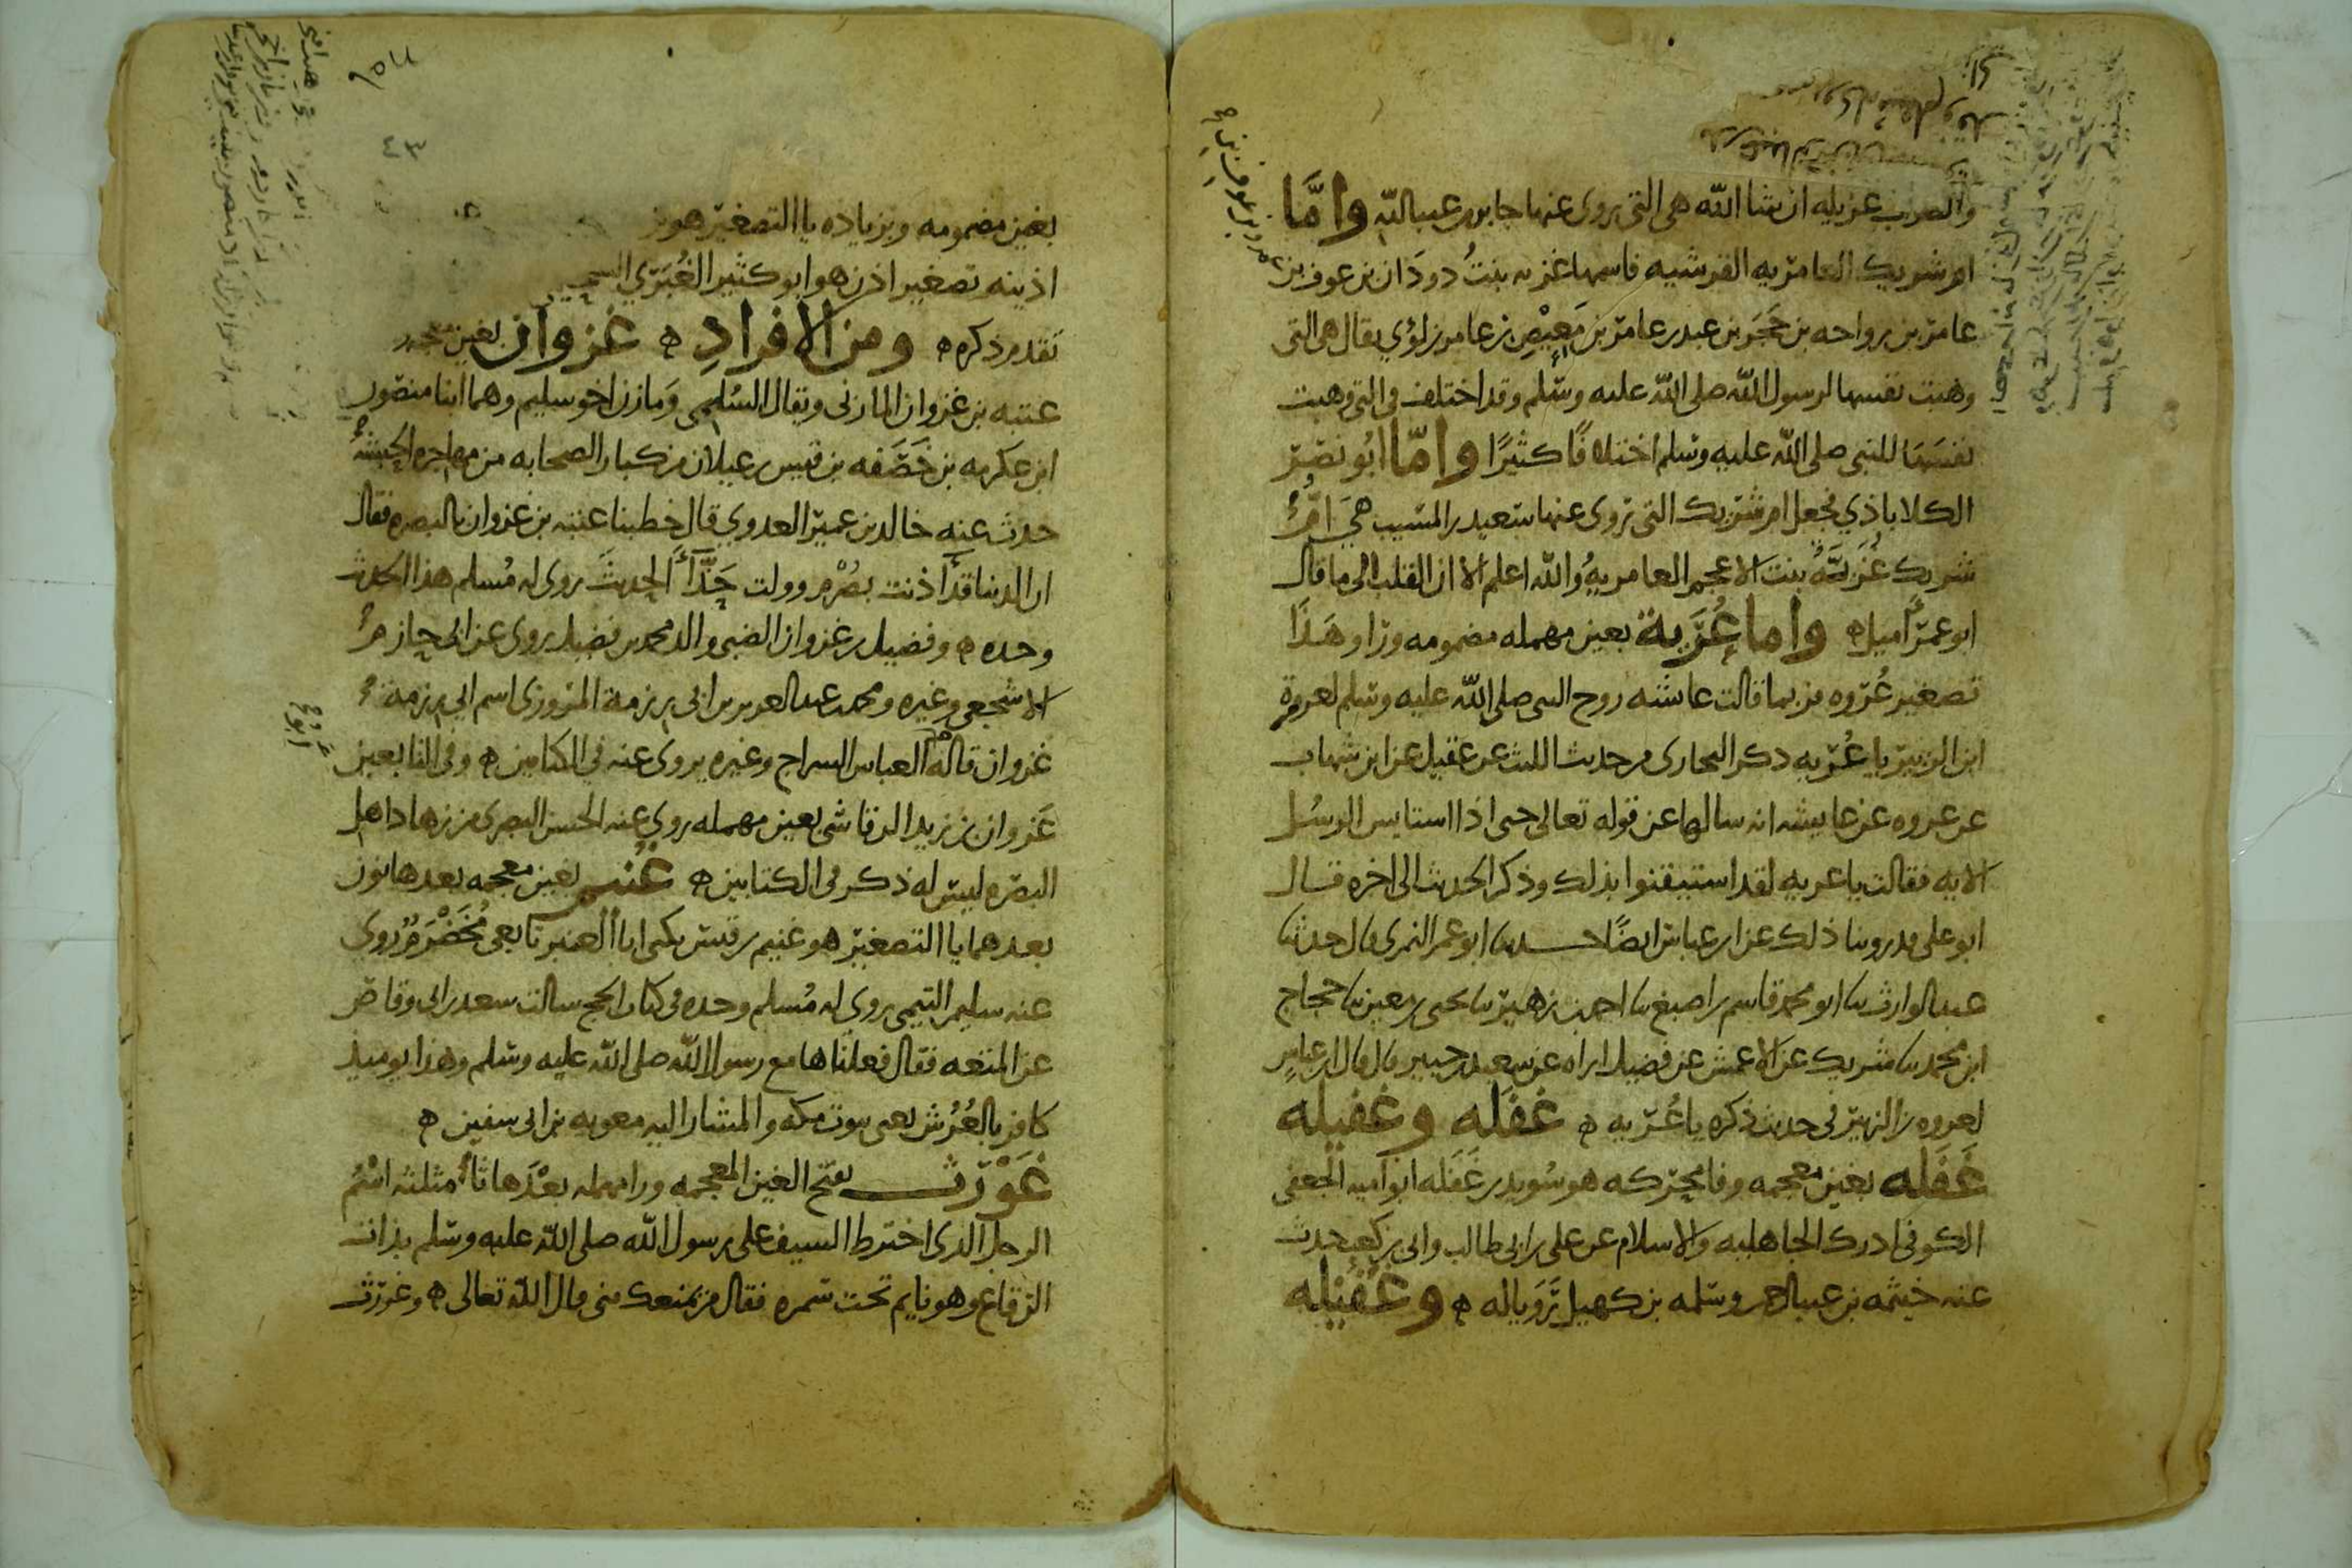 والصواب غزيله ان شا الله هي التي يروى عنها جابر بن عبد الله واما
ام شريك العامريه القرشيه فاسمها غزيه بنت دودان بن عوف بن
عامر بن رواحه بن حجر بن عبد بن عامر بن معيص بن عامر بن لؤي يقال هي التي
وهبت نفسها لرسول الله صلى الله عليه وسلم وقد اختلف في التي وهبت
نفسها للنبي صلى الله عليه وسلم اختلافا كثيرا واما ابو نصر
الكلاباذي فجعل ام شريك التي تروى عنها سعيد بن المسيب هي ام
شريك غزية بنت الاعجم العامريه والله اعلم الا ان القلب الى ما قال
ابو عمر اميل واما عرية بعين مهمله مضمومه ورا وهذا
تصغير عروه وربما قالت عائشه زوج النبي صلى الله عليه وسلم لعروة
ابن الزبير يا عريه ذكر البخاري من حديث الليث عن عقيل عن ابن شهاب
عن عروه عن عايشه انه سالها عن قوله تعالى حتى اذا استايس الرسل
الايه فقالت يا عريه لقد استيقنوا بذلك وذكر الحديث الى اخره قال
ابو علي وروينا ذلك عن ابن عباس ايضا حدثنا ابو عمر النمري قال حدثنا
عبد الوارث نا ابو محمد قاسم بن اصبغ نا احمد بن زهير نا يحيى بن معين نا حجاج
ابن محمد نا شريك عن الاعمش عن فضيل اراه عن سعيد بن جبير قال قال ابن عباس
لعروه بن الزبير في حديث ذكره يا عريه غفله وغفيله
غفله بغين معجمه وفا محركه هو سويد بن غفله ابو اميه الجعفي
الكوفي ادرك الجاهليه والاسلام عن علي بن ابي طالب وابي بن كعب حدث
عنه خيثمه بن عبد الرحمن وسلمه بن كهيل رويا له وغفيله
عمرو بن عوف بن
بغين مضمومه وبزياده يا التصغير هو بن
اذينه تصغير اذن هو ابو كثير الغبري السحيمي
تقدم ذكره ومن الافراد غزوان بغين معجمه
عتبه بن غزوان المازني ويقال السلمي ومازن اخو سليم وهما ابنا منصور
ابن عكرمه بن خصفه بن قيس بن عيلان من كبار الصحابه من مهاجره الحبشه
حدث عنه خالد بن عمير العدوي قال خطبنا عتبه بن غزوان بالبصره فقال
ان الدنيا قد اذنت بصرم وولت حذا الحديث روى له مسلم هذا الحديث
وحده وفضيل بن غزوان الضبي والد محمد بن فضيل يروى عن ابي حازم
الاشجعي وغيره ومحمد بن عبد العزيز بن ابي رزمة المروزي اسم ابي رزمة
غزوان قاله العباس السراج وغيره يروى عنه في الكتابين وفي التابعين
عزوان بن زيد الرقاشي بعين مهمله روى عنه الحسن البصري من زهاد اهل
البصره ليس له ذكر في الكتابين غنيم بغين معجمه بعدها نون
بعدهما يا التصغير هو غنيم بن قيس يكنى ابا العنبر تابعي مخضرم روى
عنه سليمن التيمي روى له مسلم وحده في كتاب الحج سالت سعد بن ابي وقاص
عن المتعه فقال فعلناها مع رسول الله صلى الله عليه وسلم وهذا يوميذ
كافر بالعرش يعني بيوت مكه والمشار اليه معويه بن ابي سفين
غورث بفتح الغين المعجمه ورا مهمله بعدها ثا مثلثه اسم
الرجل الذي اخترط السيف على رسول الله صلى الله عليه وسلم بذات
الرقاع وهو نايم تحت سمره فقال من يمنعك مني قال الله تعالى وغورث
٤٣